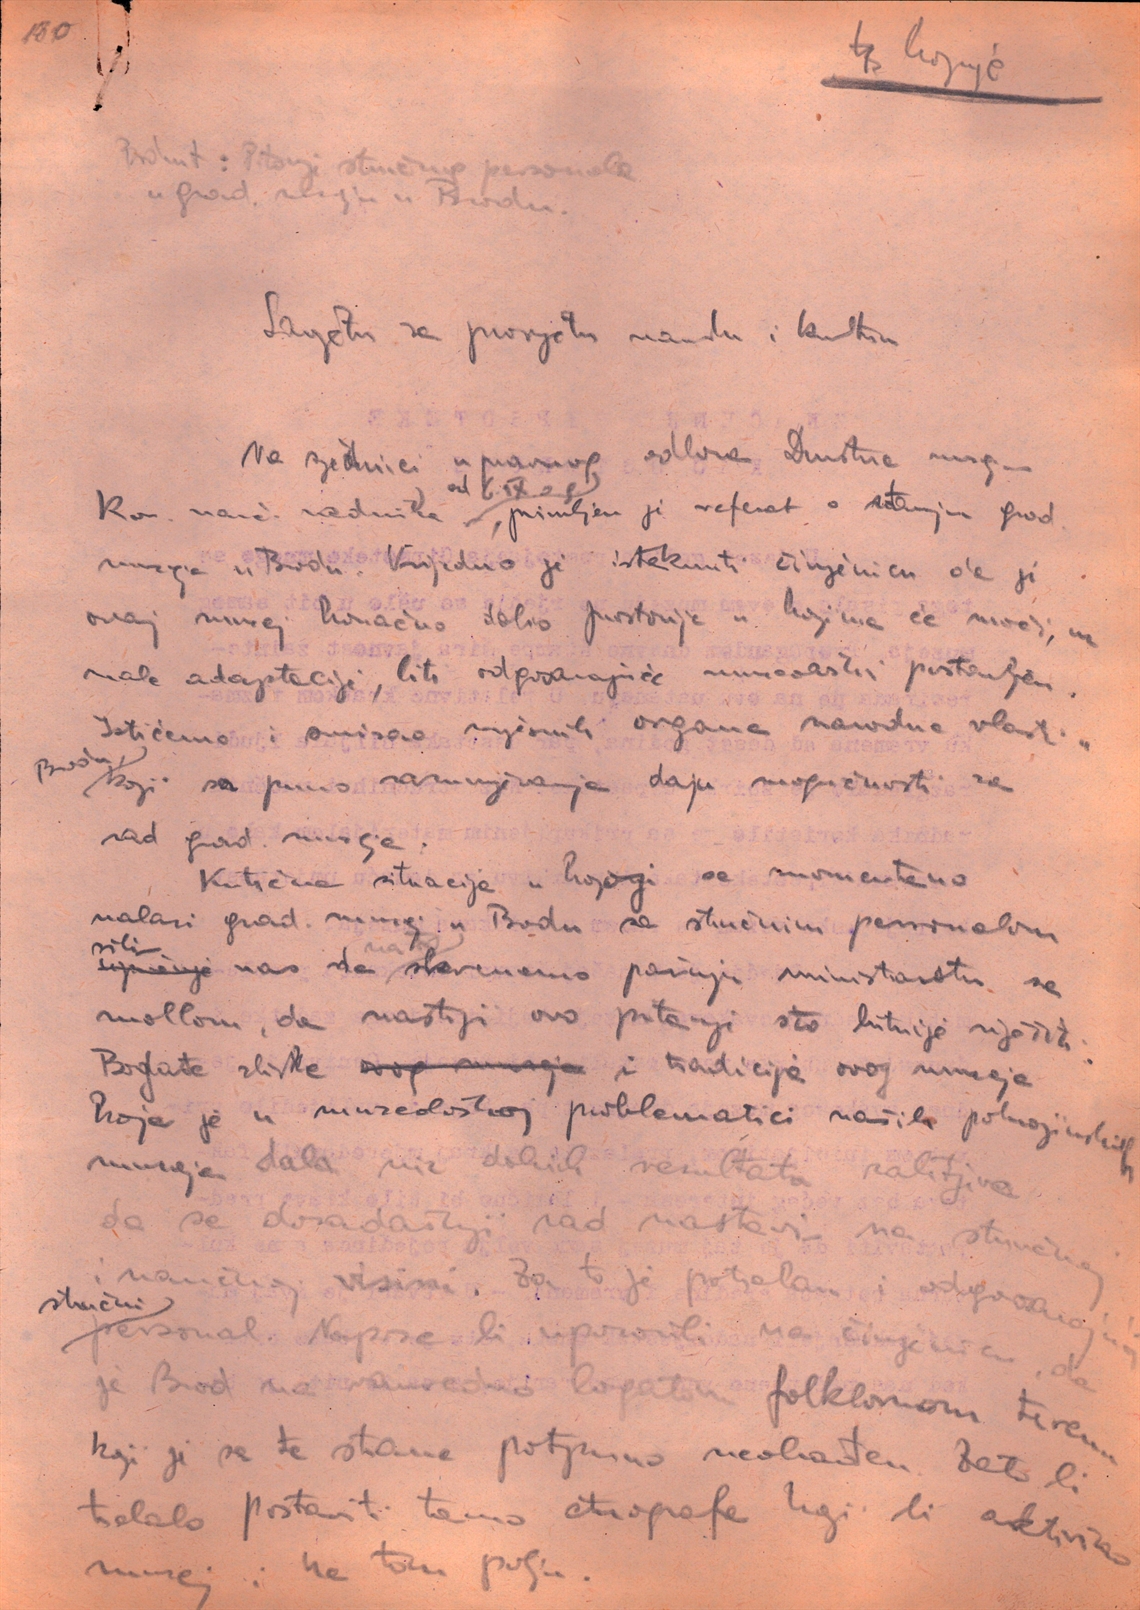 180
kopija
Predmet: Pitanje stručnog personala
u grad. muzeju u Brodu.
Savjetu za prosvjetu nauku i kulturu
Na sjednici upravnog odbora Društva muz.-
Kon. nauč. radnika, od 6 IX o g primljen je referat o stanju grad.
muzeja u Brodu. Vrijedno je istaknuti činjenicu da je
ovaj muzej konačno dobio prostorije u kojima će moći, uz
male adaptacije, biti odgovarajuće muzeološki postavljen.
Ističemo i smisao mjesnih organa narodne vlasti u
Brodu, koji sa puno razumjevanja daju mogućnosti za
rad grad. muzeja.
Kritična situacija u kojoj se momentano
nalazi grad. muzej u Brodu sa stručnim personalom
sili nas da skrenemo pažnju ministarstvu sa
molbom, da nastoji ovo pitanje što hitnije riješiti.
Bogate zbirke ovog muzeja i tradicija ovog muzeja
koja je u muzeološkoj problematici naših pokrajinskih
muzeja dala niz dobrih rezultata zahtjeva
da se dosadašnji rad nastavi na stručnoj
i naučnoj visini. Za to je potreban i odgovarajući
stručni personal. Napose bi upozorili na činjenicu, da
je Brod na vanredno bogatom folklornom terenu
koji je sa te strane potpuno neobrađen. Zato bi
trebalo postaviti tamo etnografa koji bi aktivirao
muzej i na tom polju.